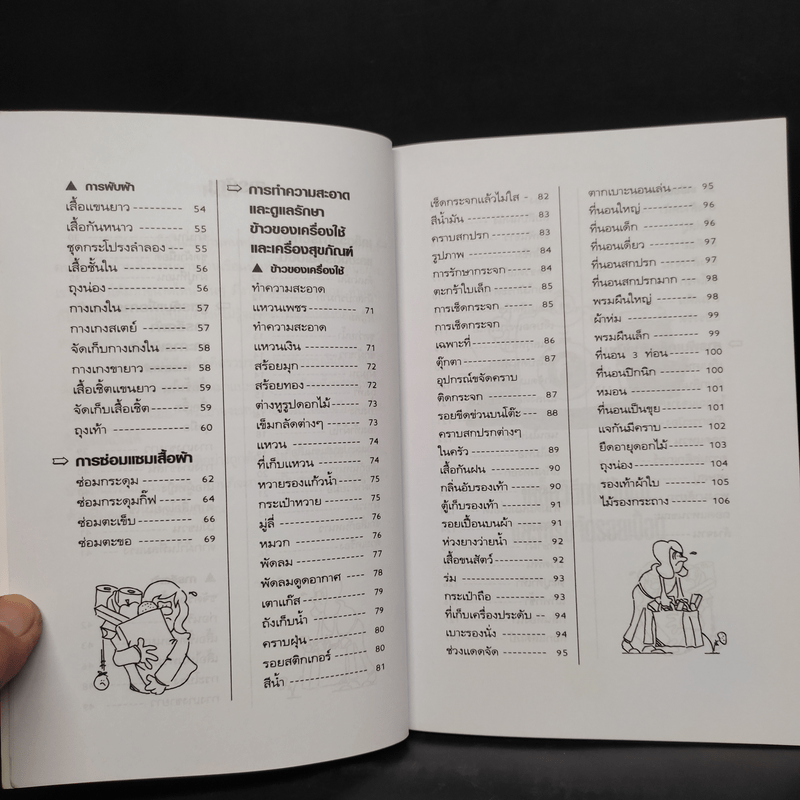 ▲ การพับผ้า
เสื้อแขนยาว ---------- 54
เสื้อกันหนาว ---------- 55
ชุดกระโปรงลำลอง --- 55
เสื้อชั้นใน ------------- 56
ถุงน่อง ---------------- 56
กางเกงใน ------------- 57
กางเกงสเตย์ ---------- 57
จัดเก็บกางเกงใน ------ 58
กางเกงขายาว --------- 58
เสื้อเชิ้ตแขนยาว ------- 59
จัดเก็บเสื้อเชิ้ต --------- 59
ถุงเท้า ----------------- 60
⇨ การซ่อมแซมเสื้อผ้า
ซ่อมกระดุม ----------- 62
ซ่อมกระดุมกิ๊ฟ ------- 64
ซ่อมตะเข็บ ------------ 66
ซ่อมตะขอ ------------- 69
⇨ การทำความสะอาด
และดูแลรักษา
ข้าวของเครื่องใช้
และเครื่องสุขภัณฑ์
▲ ข้าวของเครื่องใช้
ทำความสะอาด
แหวนเพชร ----------- 71
ทำความสะอาด
แหวนเงิน ------------- 71
สร้อยมุก -------------- 72
สร้อยทอง ------------ 72
ต่างหูรูปดอกไม้ ------ 73
เข็มกลัดต่างๆ -------- 73
แหวน ----------------- 74
ที่เก็บแหวน ----------- 74
หวายรองแก้วน้ำ ----- 75
กระเป๋าหวาย --------- 75
มู่ลี่ -------------------- 76
หมวก ----------------- 76
พัดลม ---------------- 77
พัดลมดูดอากาศ ---- 78
เตาแก๊ส -------------- 79
ถังเก็บน้ำ ------------- 79
คราบฝุ่น -------------- 80
รอยสติกเกอร์ -------- 80
สีน้ำ ------------------- 81
เช็ดกระจกแล้วไม่ใส - 82
สีน้ำมัน --------------- 83
คราบสกปรก --------- 83
รูปภาพ --------------- 84
การรักษากระจก ----- 84
ตะกร้าใบเล็ก --------- 85
การเช็ดกระจก ------- 85
การเช็ดกระจก
เฉพาะที่ -------------- 86
ตุ๊กตา ----------------- 87
อุปกรณ์ขจัดคราบ
ติดกระจก ------------ 87
รอยขีดข่วนบนโต๊ะ --- 88
คราบสกปรกต่างๆ
ในครัว ---------------- 89
เสื้อกันฝน ------------ 90
กลิ่นอับรองเท้า ------- 90
ตู้เก็บรองเท้า --------- 91
รอยเปื้อนบนผ้า ------ 91
ห่วงยางว่ายน้ำ ------- 92
เสื้อขนสัตว์ ----------- 92
ร่ม -------------------- 93
กระเป๋าถือ ------------ 93
ที่เก็บเครื่องประดับ -- 94
เบาะรองนั่ง ----------- 94
ช่วงแดดจัด ---------- 95
ตากเบาะนอนเล่น ---- 95
ที่นอนใหญ่ ----------- 96
ที่นอนเด็ก ------------ 96
ที่นอนเดี่ยว ----------- 97
ที่นอนสกปรก -------- 97
ที่นอนสกปรกมาก --- 98
พรมผืนใหญ่ --------- 98
ผ้าห่ม ---------------- 99
พรมผืนเล็ก ----------- 99
ที่นอน 3 ท่อน ------- 100
ที่นอนปิกนิก --------- 100
หมอน ---------------- 101
ที่นอนเป็นขุย -------- 101
แจกันมีคราบ -------- 102
ยืดอายุดอกไม้ ------- 103
ถุงน่อง --------------- 104
รองเท้าผ้าใบ --------- 105
ไม้รองกระถาง ------- 106